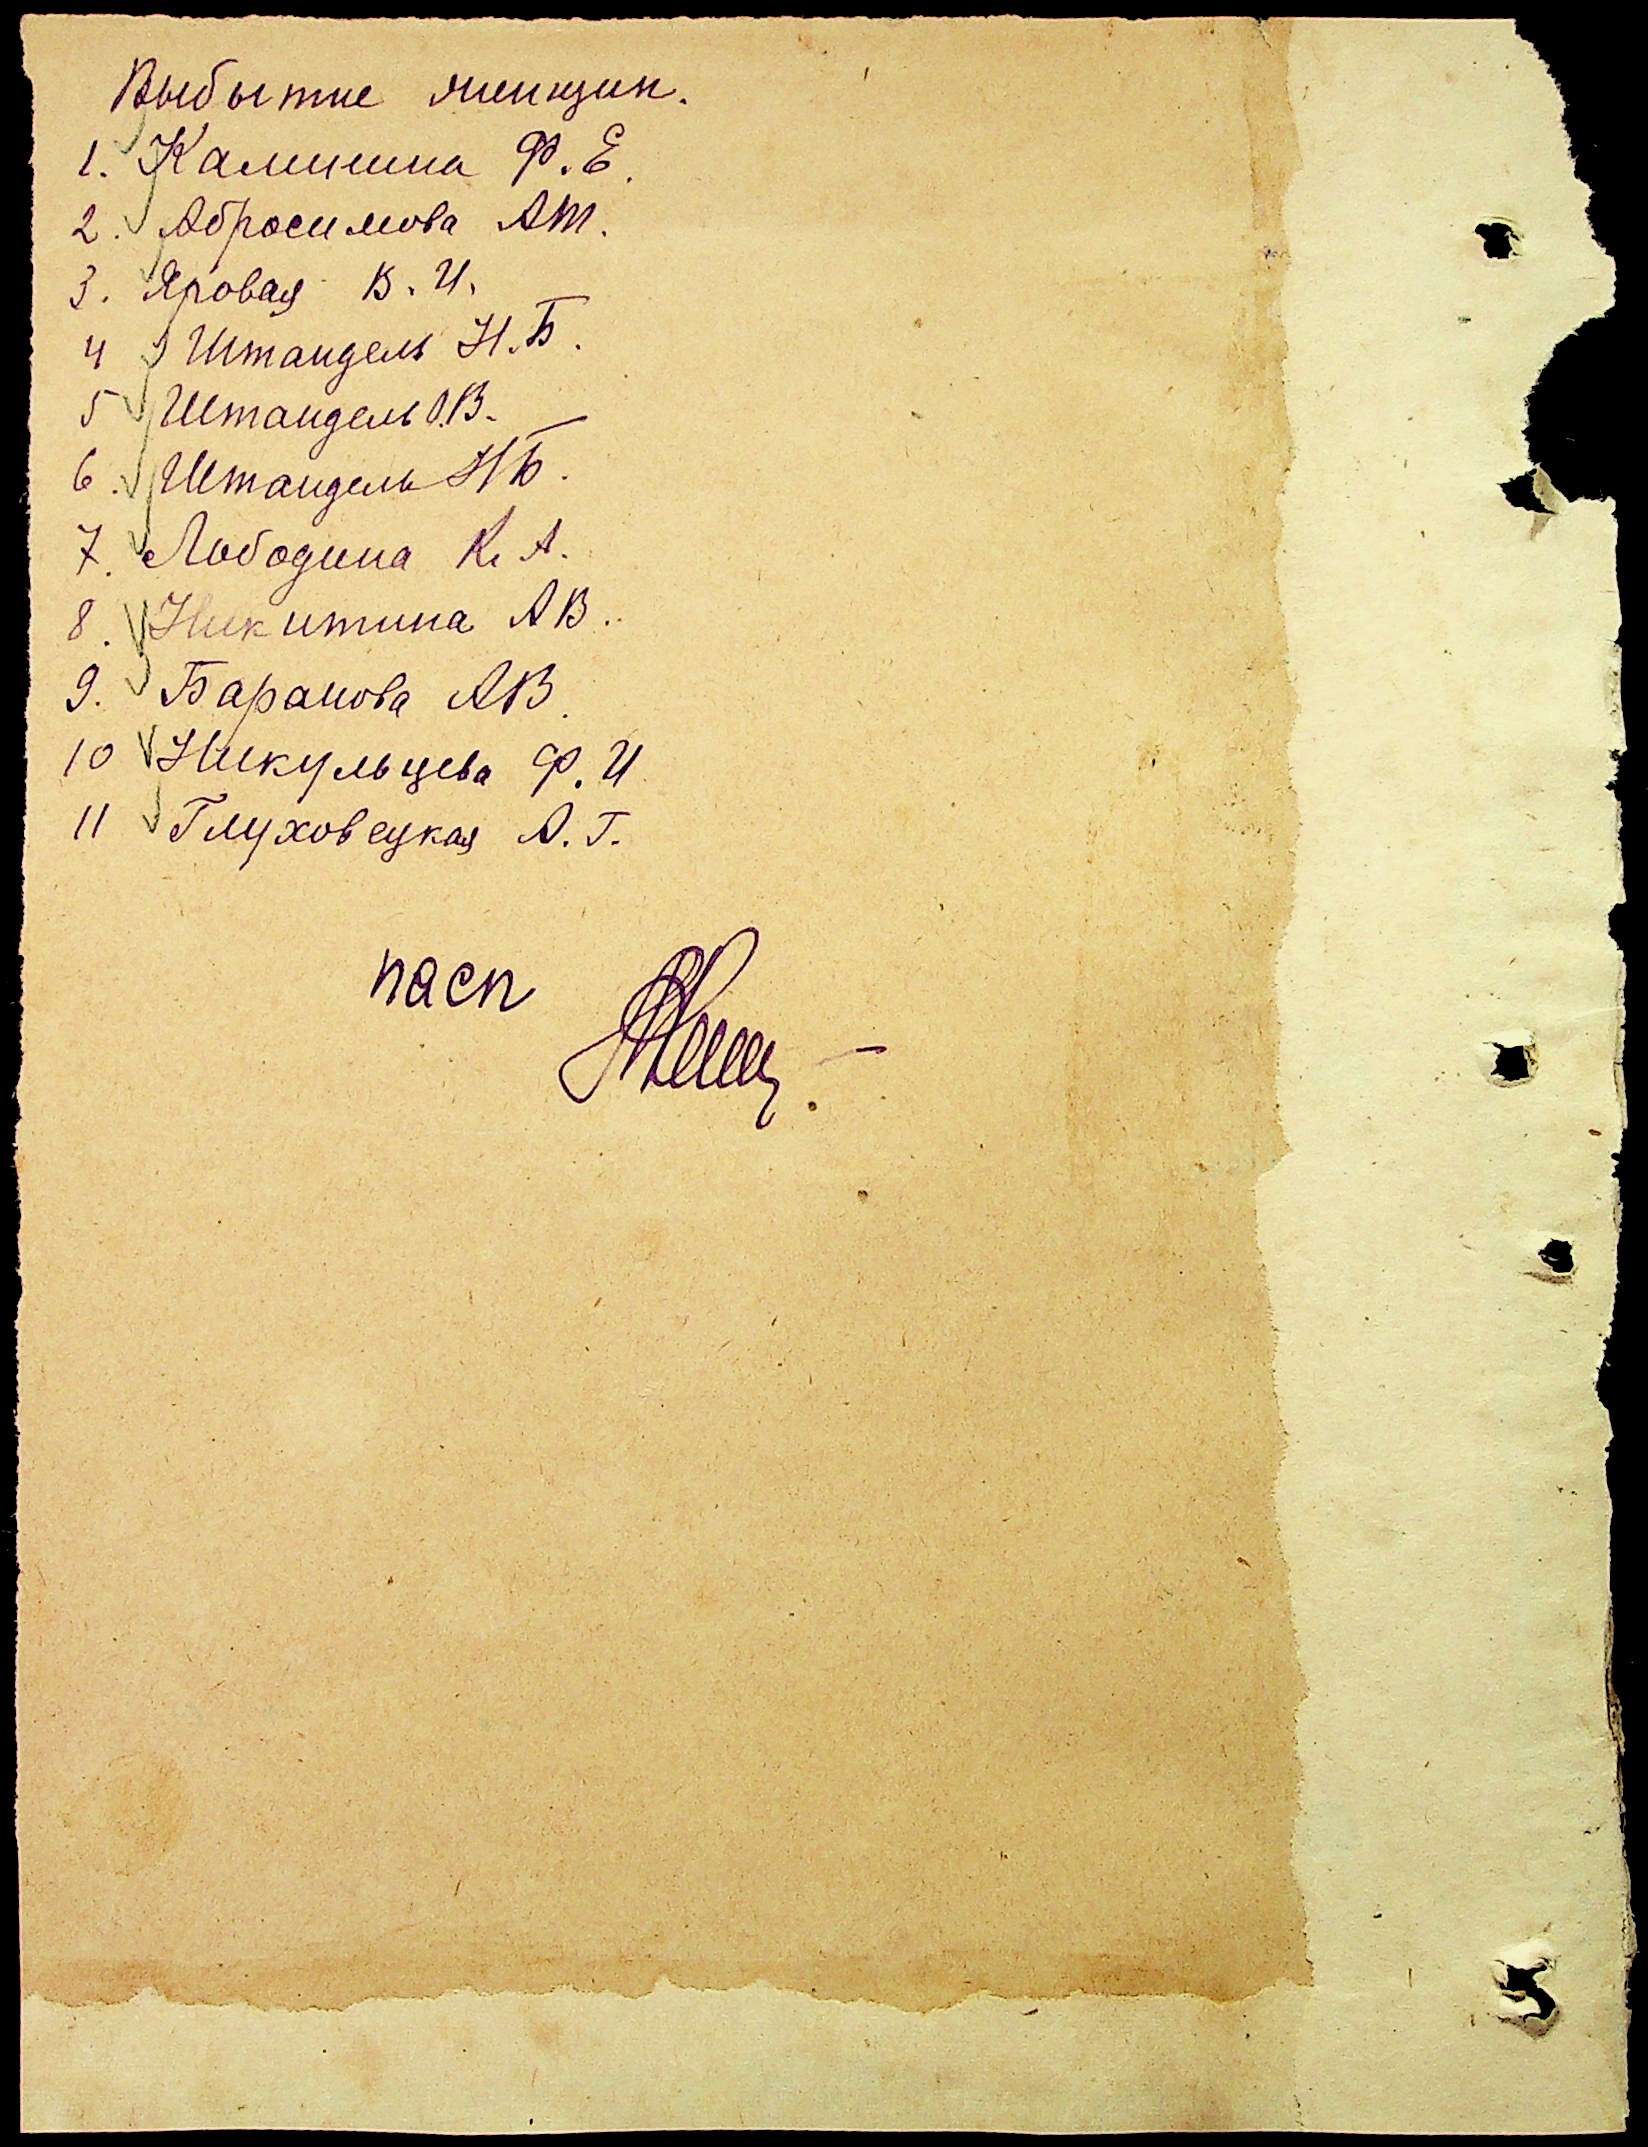 Выбытие женщин.
1. Калинина Ф. Е.
2. Абросимова АТ.
3. Яровая В. И.
4 Штандель Н. Б.
5 Штандель О.В.
6. Штандель НБ.
7. Лободина К. А.
8. Никитина АВ.
9. Баранова АВ.
10 Никульцева Ф. И
11 Глуховецкая А. Г.
пасп